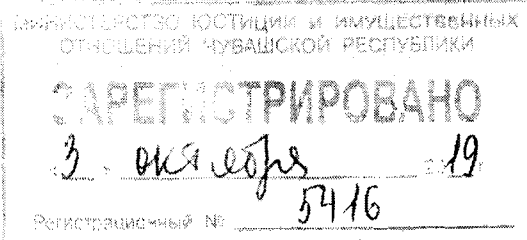 МИНИСТЕРСТВО ЮСТИЦИИ И ИМУЩЕСТВЕННЫХ
ОТНОШЕНИЙ ЧУВАШСКОЙ РЕСПУБЛИКИ
ЗАРЕГИСТРИРОВАНО
« 3 » октября 2019 г
Регистрационный № 5416